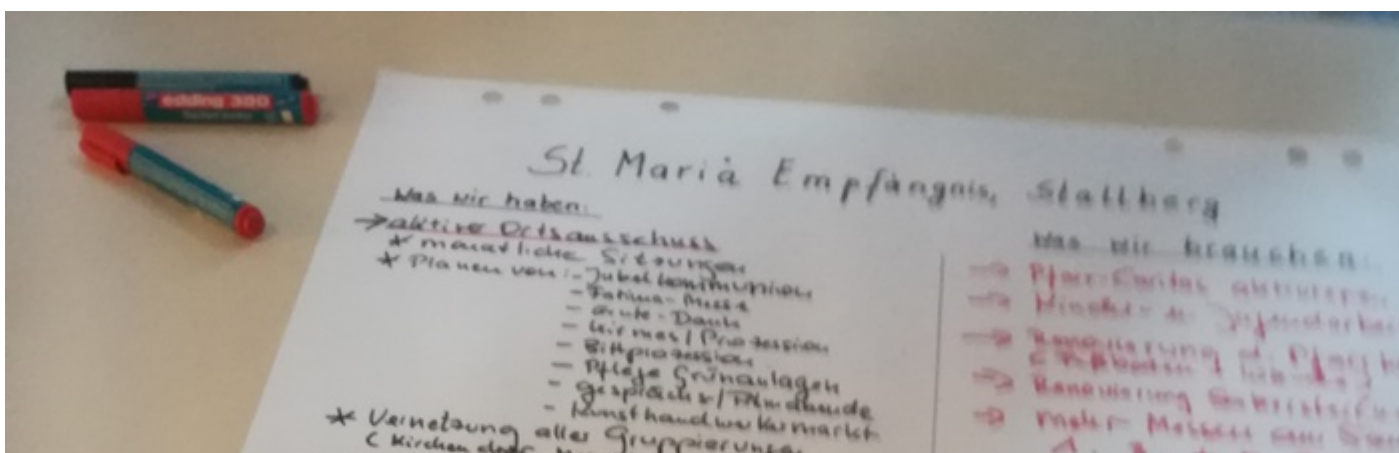 edding 380
St. Mariä Empfängnis, Stallberg
Was wir haben:
→ aktiver Ortsausschuss
* monatliche Sitzungen
* Planen von: - Jubelkommunion
- Fatima-Messe
- Ernte-Dank
- Kirmes/Prozession
- Bittprozession
- Pflege Grünanlagen
- Gesprächs/Filmabende
- Kunsthandwerkermarkt
* Vernetzung aller Gruppierungen
Was wir brauchen:
→ Pfarr-Caritas
→ Kinder- u. Jugendarbeit
→ Renovierung d.
→ Renovierung
→ mehr Messen am